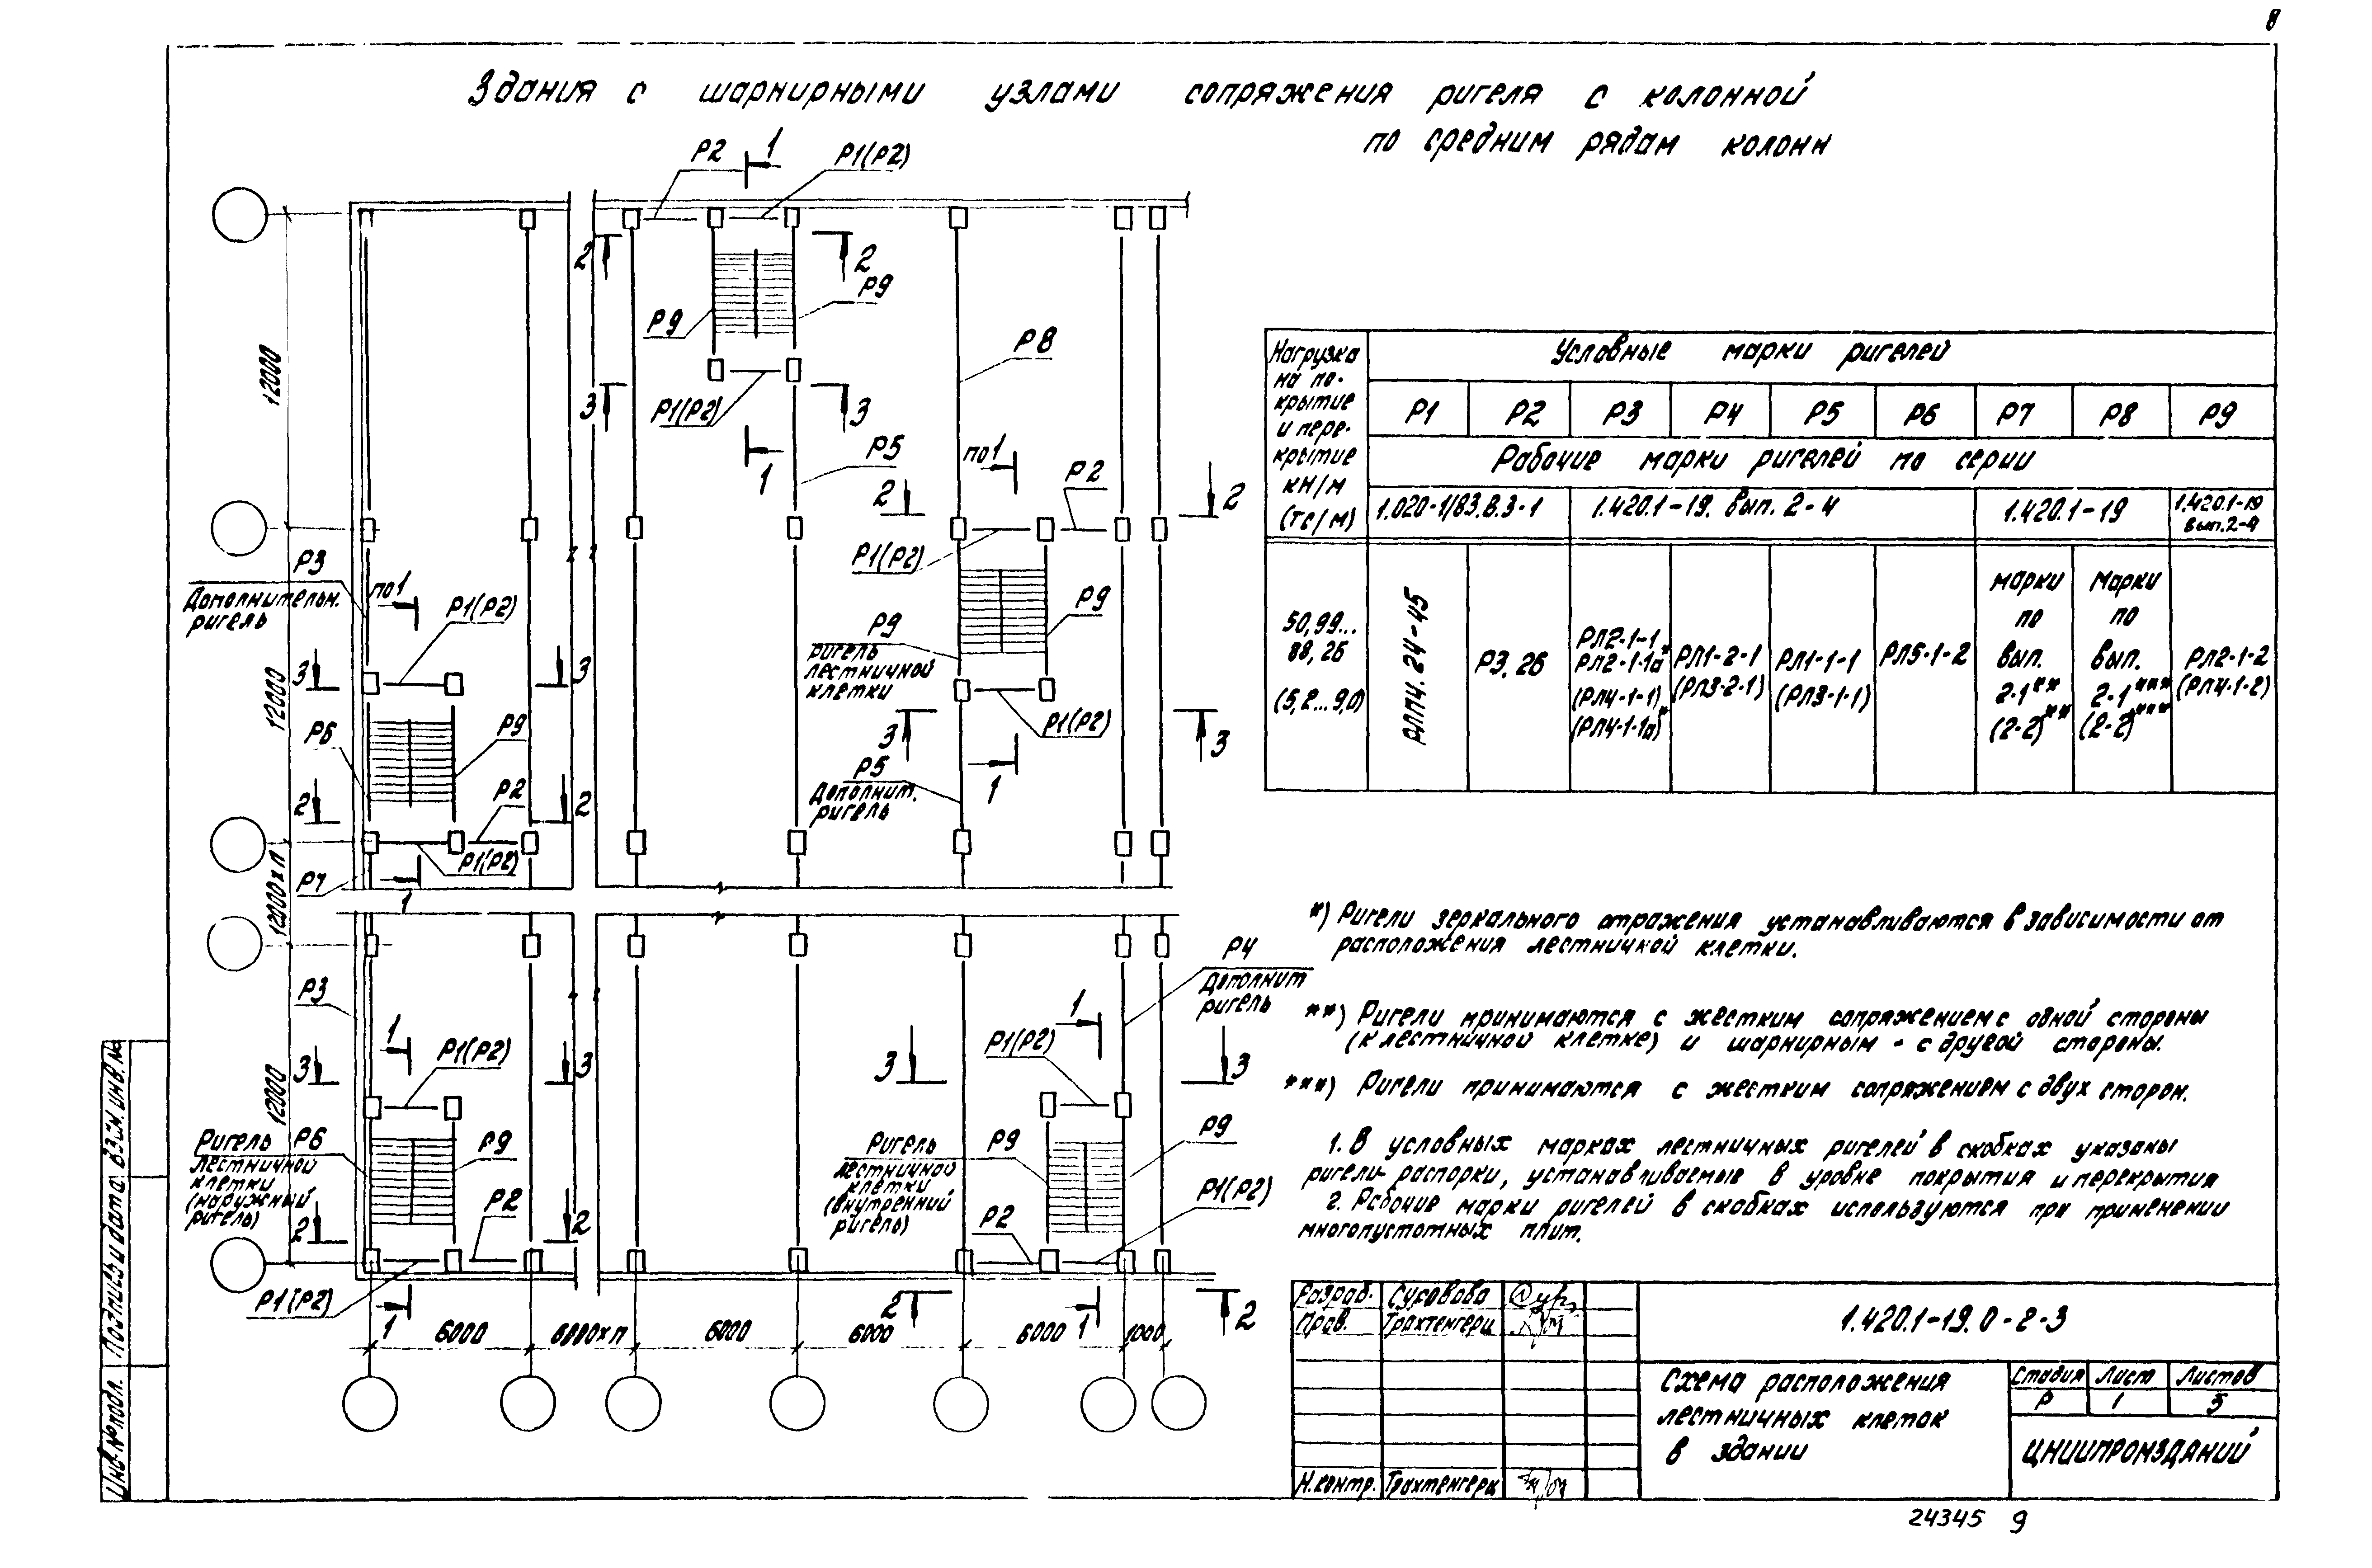 8
Здания с шарнирными узлами сопряжения ригеля с колонной
по средним рядам колонн
Р2
1
Р1(Р2)
2
2
Р9
Р9
Р8
12000
3
Р1(Р2)
3
1
Р5
по1
Р2
2
2
Р1(Р2)
Р3
Дополнительн.
ригель
по1
Р1(Р2)
Р9
Р9
ригель
лестничной
клетки
3
3
12000
Р1(Р2)
3
3
Р6
Р9
Р5
Дополнит.
ригель
1
2
Р2
2
Р1(Р2)
Р7
1
12000хп
Р3
Р4
Дополнит
ригель
1
1
Р1(Р2)
Р1(Р2)
3
3
3
3
12000
Ригель Р6
лестничной
клетки
(наружный
ригель)
Р9
Ригель Р9
лестничной
клетки
(внутренний
ригель)
Р9
Р1(Р2)
Р2
2
2
Р2
Р1(Р2)
1
2
1
2
6000
6000хп
6000
6000
6000
1000
Нагрузка
на по-
крытие
и пере-
крытие
кН/м
(тс/м)
Условные марки ригелей
Р1 Р2 Р3 Р4 Р5 Р6 Р7 Р8 Р9
Рабочие марки ригелей по серии
1.020-1/83.В.3-1
1.420.1-19. Вып. 2-4
1.420.1-19
1.420.1-19
Вып.2-4
50,99...
88,26
(5,2...9,0)
РЛП4.24-45
Р3.26
РЛ2-1-1
РЛ2-1-1а*
(РЛ4-1-1)
(РЛ4-1-1а)*
РЛ1-2-1
(РЛ3-2-1)
РЛ1-1-1
(РЛ3-1-1)
РЛ5-1-2
марки
по
вып.
2-1**
(2-2)**
Марки
по
вып.
2-1***
(2-2)***
РЛ2-1-2
(РЛ4-1-2)
*) Ригели зеркального отражения устанавливаются в зависимости от
расположения лестничной клетки.
**) Ригели принимаются с жестким сопряжением с одной стороны
(к лестничной клетке) и шарнирным - с другой стороны.
***) Ригели принимаются с жестким сопряжением с двух сторон.
1. В условных марках лестничных ригелей в скобках указаны
ригели-распорки, устанавливаемые в уровне покрытия и перекрытия
2. Рабочие марки ригелей в скобках используются при применении
многопустотных плит.
Разраб. Суховова
Пров. Трахтенгерц
Н.контр. Трахтенгерц
1.420.1-19.0-2-3
Схема расположения
лестничных клеток
в здании
Стадия Лист Листов
Р 1 5
ЦНИИПРОМЗДАНИЙ
Инв.№подл. Подпись и дата Взам.инв.№
24345 9